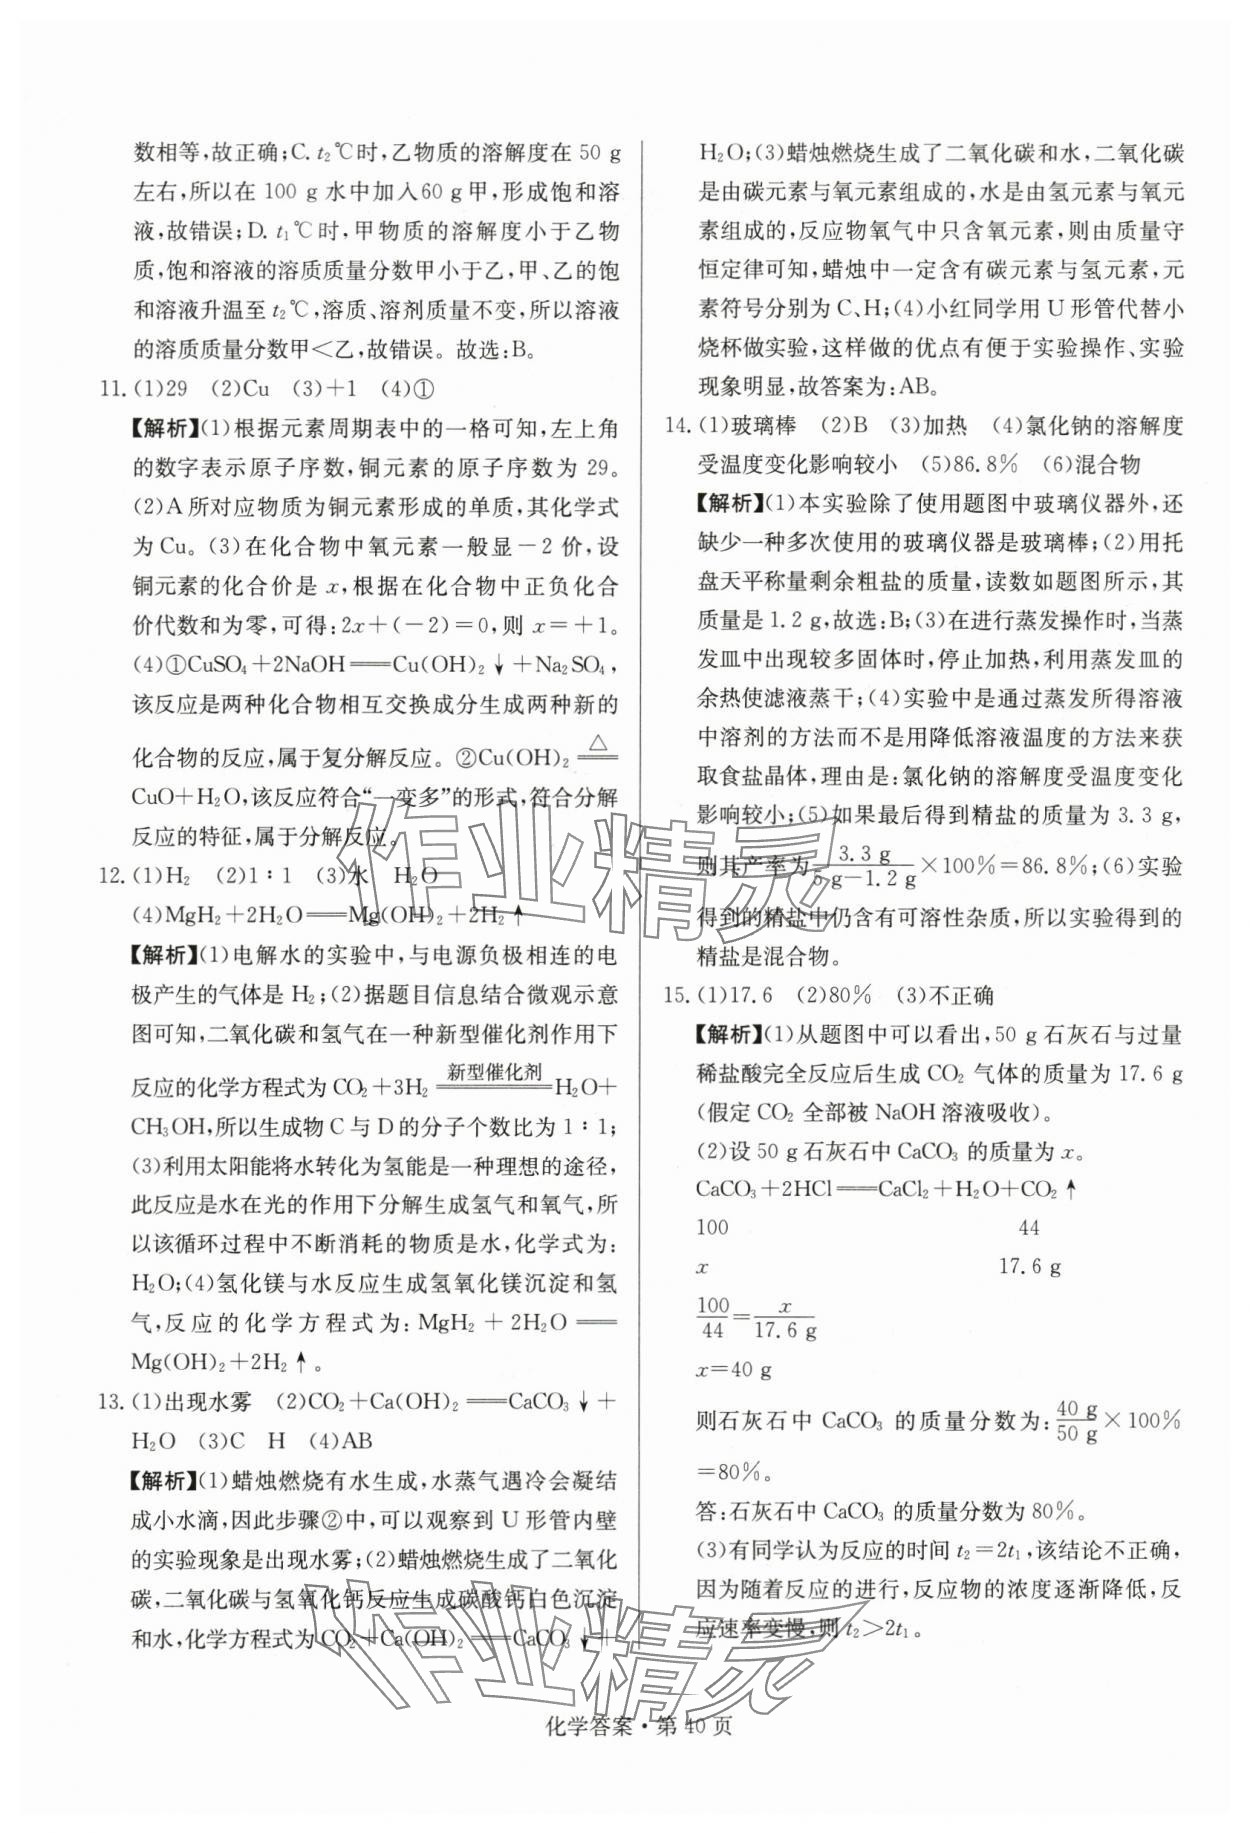 数相等,故正确;C. t₂℃时,乙物质的溶解度在 50 g
左右,所以在 100 g 水中加入60 g 甲,形成饱和溶
液,故错误;D. t₁℃时,甲物质的溶解度小于乙物
质,饱和溶液的溶质质量分数甲小于乙,甲、乙的饱
和溶液升温至 t₂℃,溶质、溶剂质量不变,所以溶液
的溶质质量分数甲<乙,故错误。故选:B。
11. (1)29 (2)Cu (3)+1 (4)①
【解析】(1)根据元素周期表中的一格可知,左上角
的数字表示原子序数,铜元素的原子序数为 29。
(2)A 所对应物质为铜元素形成的单质,其化学式
为 Cu。(3)在化合物中氧元素一般显-2 价,设
铜元素的化合价是 x,根据在化合物中正负化合
价代数和为零,可得:2x+(-2)=0,则 x=+1。
(4)①CuSO₄+2NaOH══Cu(OH)₂↓+Na₂SO₄,
该反应是两种化合物相互交换成分生成两种新的
化合物的反应,属于复分解反应。②Cu(OH)₂ ══△
CuO+H₂O,该反应符合“一变多”的形式,符合分解
反应的特征,属于分解反应。
12. (1)H₂ (2)1∶1 (3)水 H₂O
(4)MgH₂+2H₂O══Mg(OH)₂+2H₂↑
【解析】(1)电解水的实验中,与电源负极相连的电
极产生的气体是 H₂;(2)据题目信息结合微观示意
图可知,二氧化碳和氢气在一种新型催化剂作用下
反应的化学方程式为 CO₂+3H₂ ══新型催化剂 H₂O+
CH₃OH,所以生成物 C 与 D 的分子个数比为 1∶1;
(3)利用太阳能将水转化为氢能是一种理想的途径,
此反应是水在光的作用下分解生成氢气和氧气,所
以该循环过程中不断消耗的物质是水,化学式为:
H₂O;(4)氢化镁与水反应生成氢氧化镁沉淀和氢
气,反应的化学方程式为: MgH₂ + 2H₂O ══
Mg(OH)₂+2H₂↑。
13. (1)出现水雾 (2)CO₂+Ca(OH)₂══CaCO₃↓+
H₂O (3)C H (4)AB
【解析】(1)蜡烛燃烧有水生成,水蒸气遇冷会凝结
成小水滴,因此步骤②中,可以观察到 U 形管内壁
的实验现象是出现水雾;(2)蜡烛燃烧生成了二氧化
碳,二氧化碳与氢氧化钙反应生成碳酸钙白色沉淀
和水,化学方程式为 CO₂+Ca(OH)₂══CaCO₃↓+
H₂O;(3)蜡烛燃烧生成了二氧化碳和水,二氧化碳
是由碳元素与氧元素组成的,水是由氢元素与氧元
素组成的,反应物氧气中只含氧元素,则由质量守
恒定律可知,蜡烛中一定含有碳元素与氢元素,元
素符号分别为 C、H;(4)小红同学用 U 形管代替小
烧杯做实验,这样做的优点有便于实验操作、实验
现象明显,故答案为:AB。
14. (1)玻璃棒 (2)B (3)加热 (4)氯化钠的溶解度
受温度变化影响较小 (5)86.8% (6)混合物
【解析】(1)本实验除了使用题图中玻璃仪器外,还
缺少一种多次使用的玻璃仪器是玻璃棒;(2)用托
盘天平称量剩余粗盐的质量,读数如题图所示,其
质量是 1.2 g,故选:B;(3)在进行蒸发操作时,当蒸
发皿中出现较多固体时,停止加热,利用蒸发皿的
余热使滤液蒸干;(4)实验中是通过蒸发所得溶液
中溶剂的方法而不是用降低溶液温度的方法来获
取食盐晶体,理由是:氯化钠的溶解度受温度变化
影响较小;(5)如果最后得到精盐的质量为 3.3 g,
则其产率为 3.3 g/(5 g-1.2 g)×100%=86.8%;(6)实验
得到的精盐中仍含有可溶性杂质,所以实验得到的
精盐是混合物。
15. (1)17.6 (2)80% (3)不正确
【解析】(1)从题图中可以看出,50 g 石灰石与过量
稀盐酸完全反应后生成 CO₂ 气体的质量为 17.6 g
(假定 CO₂ 全部被 NaOH 溶液吸收)。
(2)设 50 g 石灰石中 CaCO₃ 的质量为 x。
CaCO₃+2HCl══CaCl₂+H₂O+CO₂↑
100 44
x 17.6 g
100/44=x/17.6 g
x=40 g
则石灰石中 CaCO₃ 的质量分数为: 40 g/50 g×100%
=80%。
答:石灰石中 CaCO₃ 的质量分数为 80%。
(3)有同学认为反应的时间 t₂=2t₁,该结论不正确,
因为随着反应的进行,反应物的浓度逐渐降低,反
应速率变慢,则 t₂>2t₁。
作业精灵
作业精灵
化学答案·第 40 页